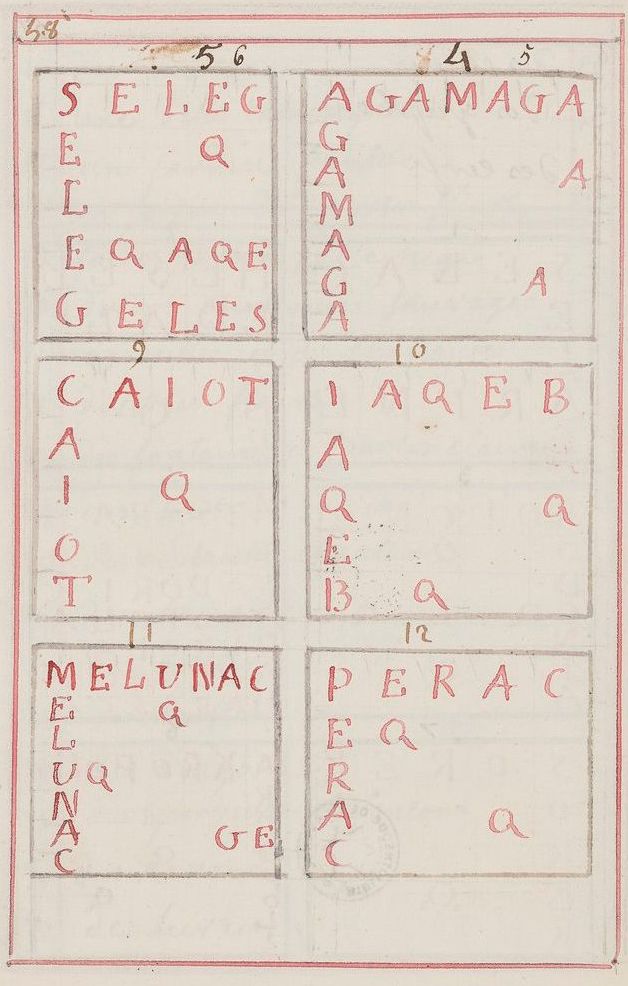 58
5 6
S E L E G
E Q
L
E Q A Q E
G E L E S
4 5
A G A M A G A
G
A A
M
A
G A
A
9
C A I O T
A
I Q
O
T
10
I A Q E B
A
Q Q
E
B Q
11
M E L U N A C
E Q
L
U Q
N
A G E
C
12
P E R A C
E Q
R
A Q
C